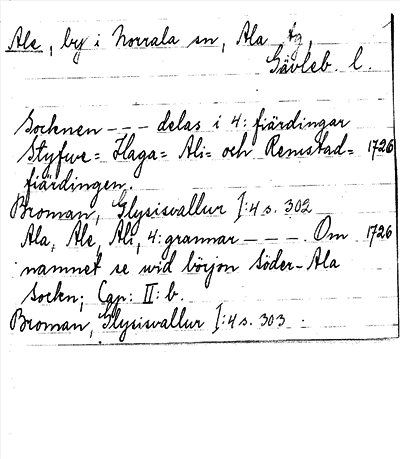 Ale, by i Norrala sn, Ala tg,
Gävleb. l.
Socknen - - - delas i 4: fiärdingar
Styfwe= Haga= Ali= och Remstad= 1726
fiärdingen.
Broman, Glysisvallur I:4 s. 302
Ala, Ale, Ali, 4: grannar - - - . Om 1726
namnet se wid börjon Söder-Ala
Sockn; Cap: II: b.
Broman, Glysisvallur I:4 s. 303